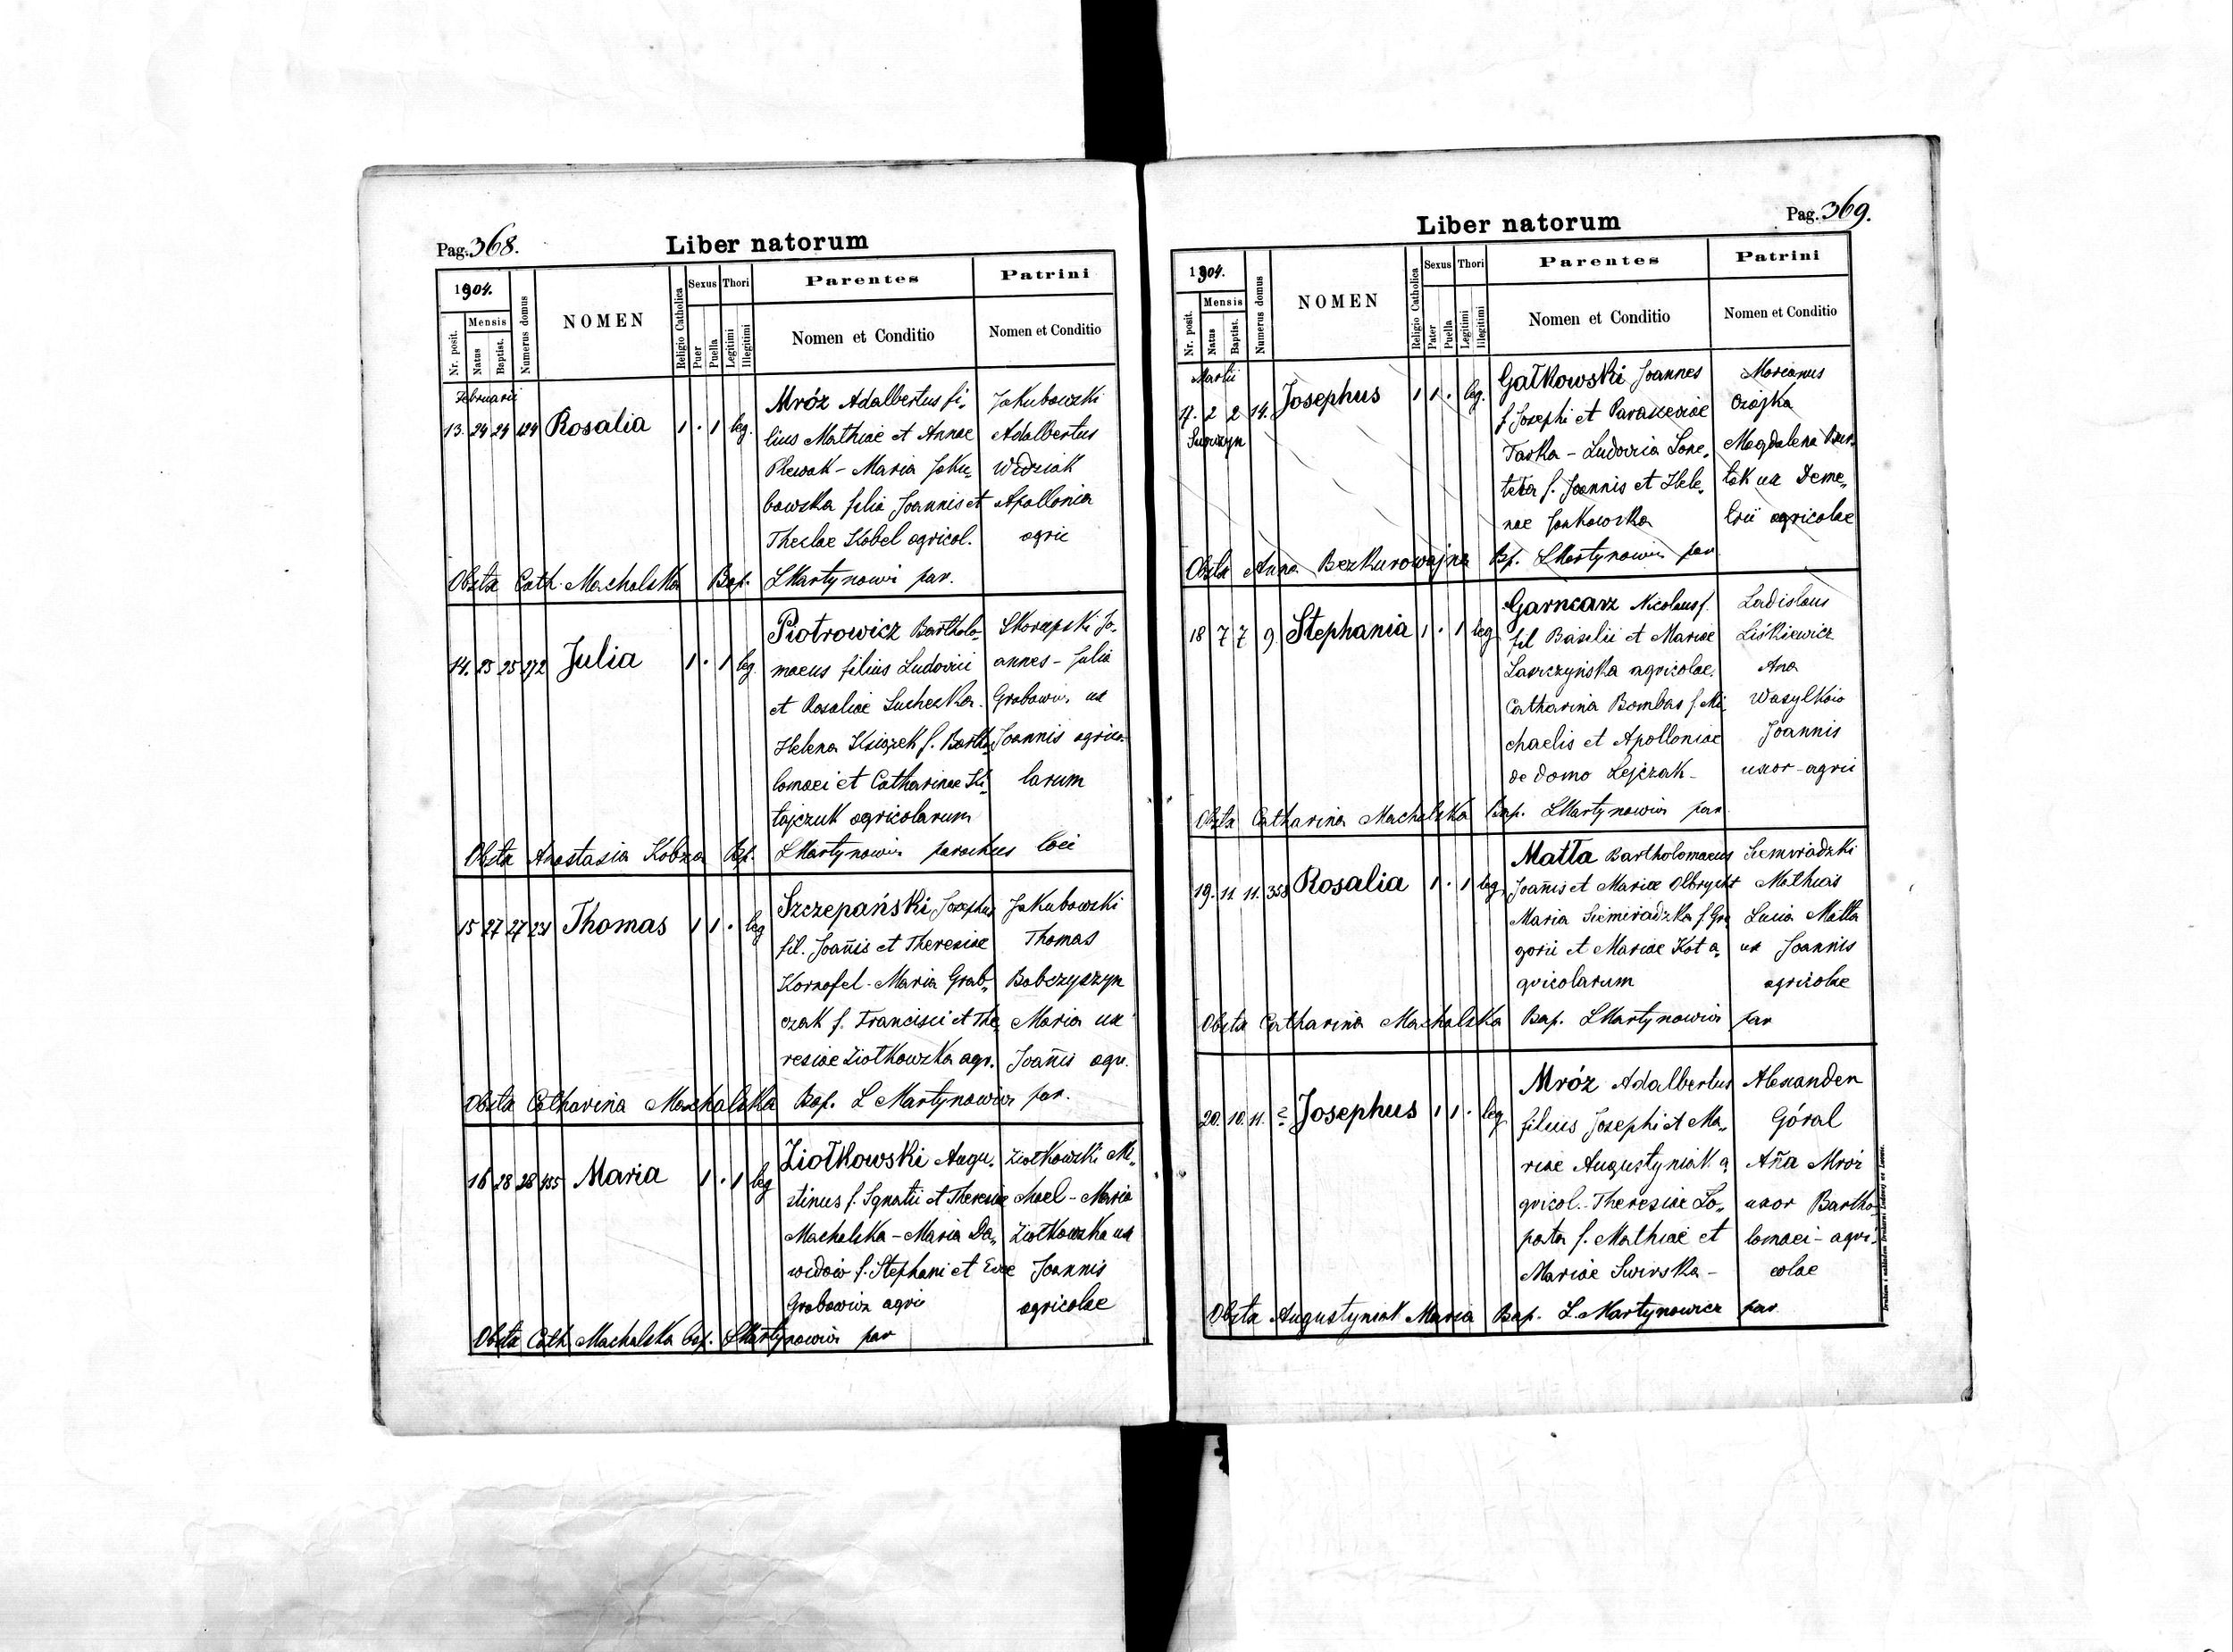 Pag. 368.
Liber natorum
1904.
Nr. posit.
Mensis
Natus
Baptist.
Numerus domus
NOMEN
Religio Catholica
Sexus
Puer
Puella
Thori
Legitimi
Illegitimi
Parentes
Nomen et Conditio
Patrini
Nomen et Conditio
Februarii
13. 24 24 124 Rosalia 1 . 1 leg.
Mróz Adalbertus fi„
lius Mathiae et Annae
Plewak - Maria Jaku„
bowska filia Joannis et
Theclae Kobel agricol.
Jakubowski
Adalbertus
Woźniak
Apollonia
agric
Obstx Cath. Machalska Bap. LMartynowi par.
14. 25 25 272 Julia 1 . 1 leg.
Piotrowicz Bartholo„
maeus filius Ludovici
et Rosaliae Sucheska.
Helena Książek f. Bartho
lomaei et Catharinae Ki„
tajczuk agricolarum
Skorupski Jo„
annes - Julia
Grabowi. ux
Joannis agrico
larum
Obstx Anastasia Kobza Bap. LMartynowi parochus loci
15 27 27 231 Thomas 1 1 . leg
Szczepański Josephus
fil. Joañis et Theresiae
Kornafel - Maria Grab„
czak f. Francisci et The
resiae Ziołkowska agr.
Jakubowski
Thomas
Bobczyszyn
Maria ux
Joañis agr.
Obstx Catharina Machalska Bap. L Martynowicz par.
16 28 28 Maria 1 . 1 leg
Ziołkowski Augu„
stinus f. Ignatii et Theresiae
Machalska - Maria Da„
widów f. Stephani et Evae
Grabowicz agric
Ziołkowski Mi„
chael - Maria
Ziołkowska ux
Joannis
agricolae
Obstx Cath Machalska bap. LMartynowicz par
Liber natorum
Pag. 369.
1904.
Nr. posit.
Mensis
Natus
Baptist.
Numerus domus
NOMEN
Religio Catholica
Sexus
Pater
Puella
Thori
Legitimi
Illegitimi
Parentes
Nomen et Conditio
Patrini
Nomen et Conditio
Martii
17. 2 2 14. Josephus 1 1 . leg.
Gałkowski Joannes
f Josephi et Parasceviae
Taska - Ludovica Lone„
f. Joannis et Hele„
nae Jankowska
Marianus
Magdalena
ux Deme„
trii agricolae
Obstx Anna Bezkurowajna Bp. LMartynowi par
18 7 7 9 Stephania 1 . 1 leg
Garncarz Nicolaus f.
fil Basilii et Mariae
Ławczyńska agricolae.
Catharina Bombas f. Mi
chaelis et Apolloniae
de domo Lejczak -
Ladislaus
Liśkiewicz
Ana
Wasylków
Joannis
uxor - agric
Obstx Catharina Machalska Bap. LMartynowicz par
19. 11 11. 358 Rosalia 1 . 1 leg
Matła Bartholomaeus
Joañis et Mariae Olbrycht
Maria Siemiradzka f. Gre
gorii et Mariae Kot a„
gricolarum
Siemiradzki
Mathias
Lucia Matła
ux Joannis
agricolae
Obstx Catharina Machalska Bap. LMartynowicz par
20. 10. 11. 2 Josephus 1 1 . leg
Mróz Adalbertus
filius Josephi et Ma„
riae Augustyniak a
gricol. - Theresiae Ło„
pata f. Mathiae et
Mariae Swirska -
Alexander
Góral
Aña Mróz
uxor Bartho
lomaei - agri„
colae
Obstx Augustyniak Maria Bap. L Martynowicz par